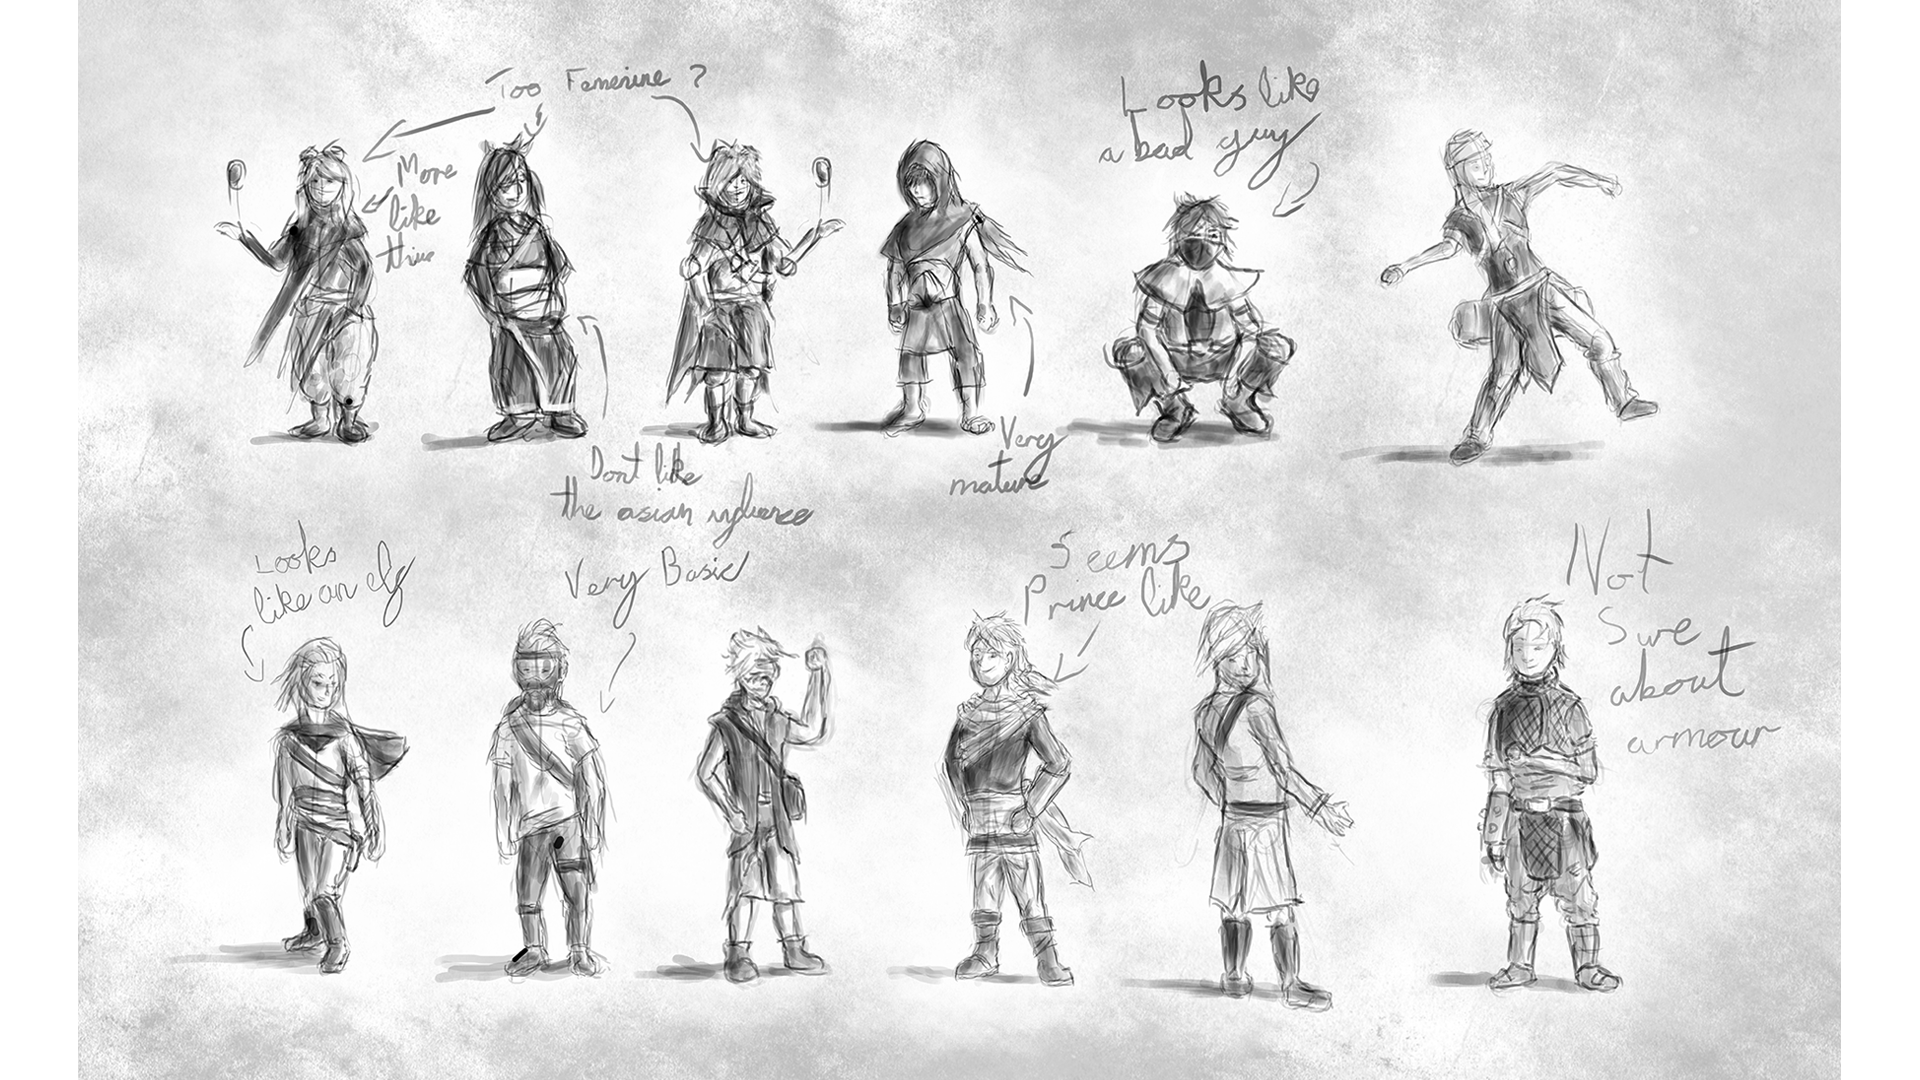 Too Femenine ?
More
like
this
Looks like
a bad guy
Very
mature
Dont like
the asian influence
Looks
like an elf
Very Basic
Seems
Prince like
Not
Sure
about
armour